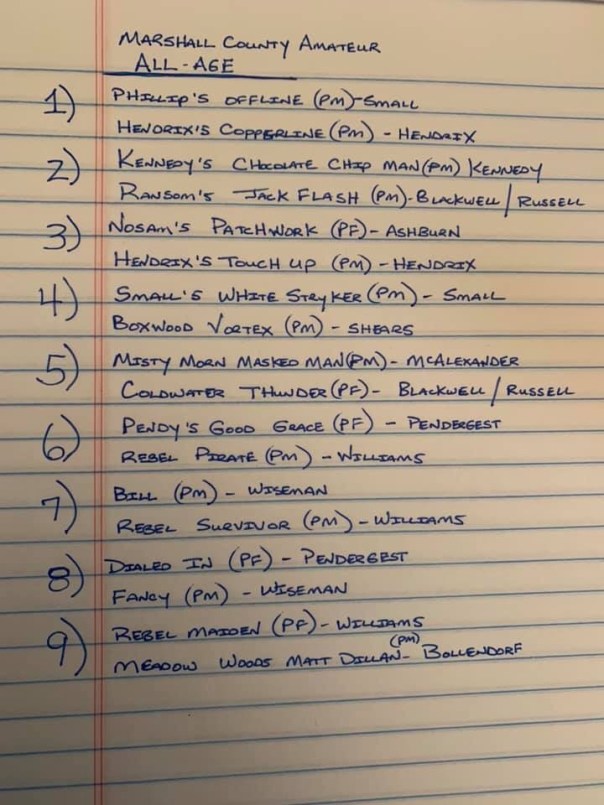 MARSHALL COUNTY AMATEUR
ALL-AGE
1) PHILLIP'S OFFLINE (PM)-SMALL
HENDRIX'S COPPERLINE (PM) - HENDRIX
2) KENNEDY'S CHOCOLATE CHIP MAN (PM) KENNEDY
RANSOM'S JACK FLASH (PM)-BLACKWELL / RUSSELL
3) NOSAM'S PATCHWORK (PF)- ASHBURN
HENDRIX'S TOUCH UP (PM) - HENDRIX
4) SMALL'S WHITE STRYKER (PM) - SMALL
BOXWOOD VORTEX (PM) - SHEARS
5) MISTY MORN MASKED MAN (PM)- MCALEXANDER
COLDWATER THUNDER (PF)- BLACKWELL / RUSSELL
6) PENDY'S GOOD GRACE (PF) - PENDERGEST
REBEL PIRATE (PM) - WILLIAMS
7) BILL (PM) - WISEMAN
REBEL SURVIVOR (PM) - WILLIAMS
8) DIALED IN (PF) - PENDERGEST
FANCY (PM) - WISEMAN
9) REBEL MAIDEN (PF)- WILLIAMS
MEADOW WOODS MATT DILLAN- (PM) BOLLENDORF